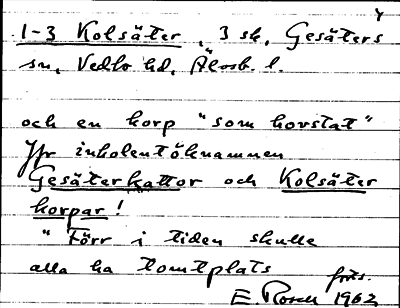 4
1-3 Kolsäter, 3 sk, Gesäters
sn, Vedbo hd, Älvsb. l.
och en korp "som hovstat"
Jfr inbolentöknamnen
Gesäterkattor och Kolsäter
korpar!
"Förr i tiden skulle
alla ha tomtplats
forts.
E. Rosell 1962